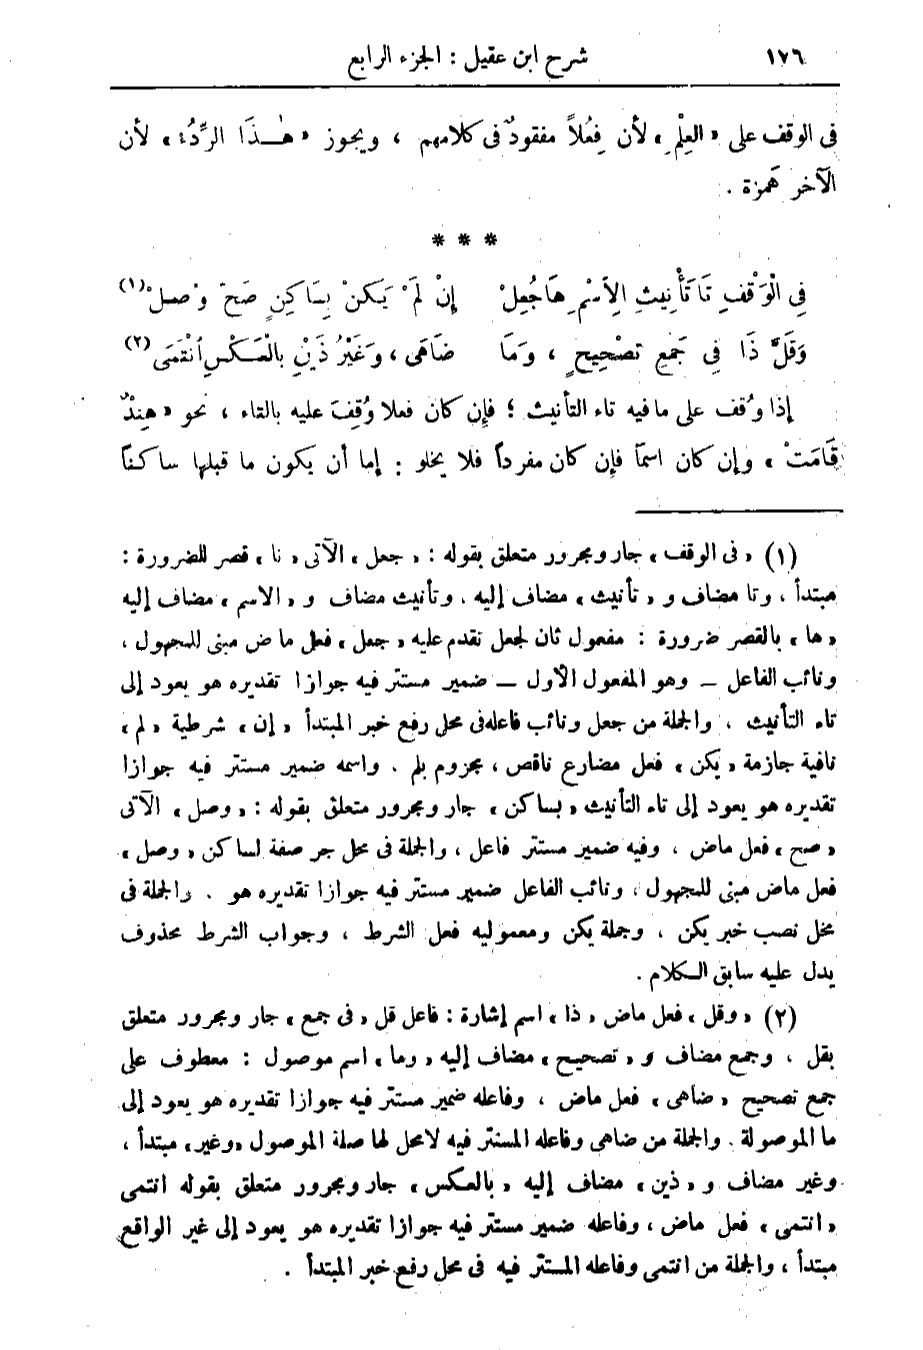 ١٧٦ شرح ابن عقيل : الجزء الرابع
فى الوقف على « العِلْمِ » لأن فِعُلاً مفقودٌ فى كلامهم ، ويجوز « هٰـذَا الرِّدُءْ » لأن
الآخر هَمزة .
* * *
فِى الْوَقْفِ تَا تَأْنِيثِ الِاسْمِ هَا جُعِلْ إِنْ لَمْ يَكُنْ بِسَاكِنٍ صَحَّ وُصِلْ(١)
وَقَلَّ ذَا فِى جَمْعِ تَصْحِيحٍ ، وَمَا ضَاهَى ، وَغَيْرُ ذَيْنِ بِالْعَكْسِ اُنْتَمَى(٢)
إذا وُقف على ما فيه تاء التأنيث ؛ فإن كان فعلا وُقِفَ عليه بالتاء ، نحو « هِنْدٌ
قَامَتْ » وإن كان اسمًا فإن كان مفرداً فلا يخلو : إما أن يكون ما قبلها ساكناً
(١) « فى الوقف » جار ومجرور متعلق بقوله : « جعل » الآتى « تا » قصر للضرورة :
مبتدأ ، وتا مضاف و « تأنيث » مضاف إليه ، وتأنيث مضاف و « الاسم » مضاف إليه
« ها » بالقصر ضرورة : مفعول ثان لجعل تقدم عليه « جعل » فعل ماض مبنى للمجهول ،
ونائب الفاعل ــ وهو المفعول الأول ــ ضمير مستتر فيه جوازا تقديره هو يعود إلى
تاء التأنيث ، والجملة من جعل ونائب فاعله فى محل رفع خبر المبتدأ « إن » شرطية « لم »
نافية جازمة « يكن » فعل مضارع ناقص ، مجزوم بلم . واسمه ضمير مستتر فيه جوازا
تقديره هو يعود إلى تاء التأنيث « بساكن » جار ومجرور متعلق بقوله : « وصل » الآتى
« صح » فعل ماض ، وفيه ضمير مستتر فاعل ، والجملة فى محل جر صفة لساكن « وصل »
فعل ماض مبنى للمجهول ، ونائب الفاعل ضمير مستتر فيه جوازا تقديره هو . والجملة فى
محل نصب خبر يكن ، وجملة يكن ومعموليه فعل الشرط ، وجواب الشرط محذوف
يدل عليه سابق الكلام .
(٢) « وقل » فعل ماض « ذا » اسم إشارة : فاعل قل « فى جمع » جار ومجرور متعلق
بقل ، وجمع مضاف و « تصحيح » مضاف إليه « وما » اسم موصول : معطوف على
جمع تصحيح « ضاهى » فعل ماض ، وفاعله ضمير مستتر فيه جوازا تقديره هو يعود إلى
ما الموصولة . والجملة من ضاهى وفاعله المستتر فيه لا محل لها صلة الموصول « وغير » مبتدأ ،
وغير مضاف و « ذين » مضاف إليه « بالعكس » جار ومجرور متعلق بقوله انتمى
« انتمى » فعل ماض ، وفاعله ضمير مستتر فيه جوازا تقديره هو يعود إلى غير الواقع
مبتدأ ، والجملة من انتمى وفاعله المستتر فيه فى محل رفع خبر المبتدأ .